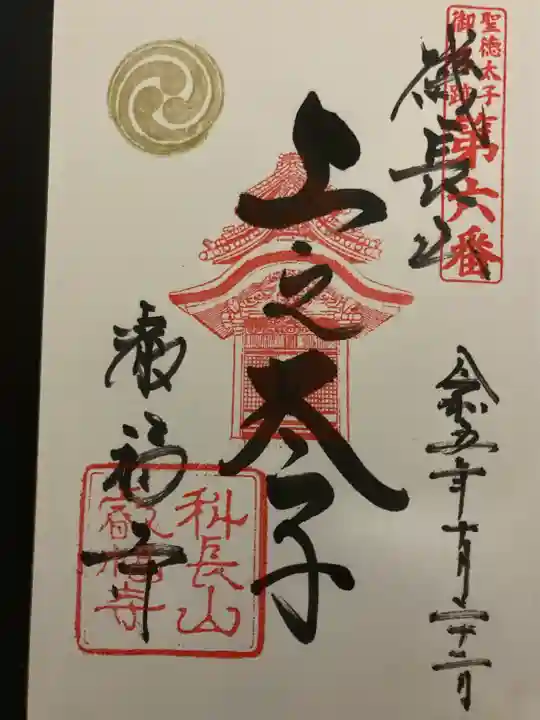 聖徳太子
御遺跡
第六番
磯長山
令和五年十月二十二日
上之太子
叡福寺
科長山
叡福寺